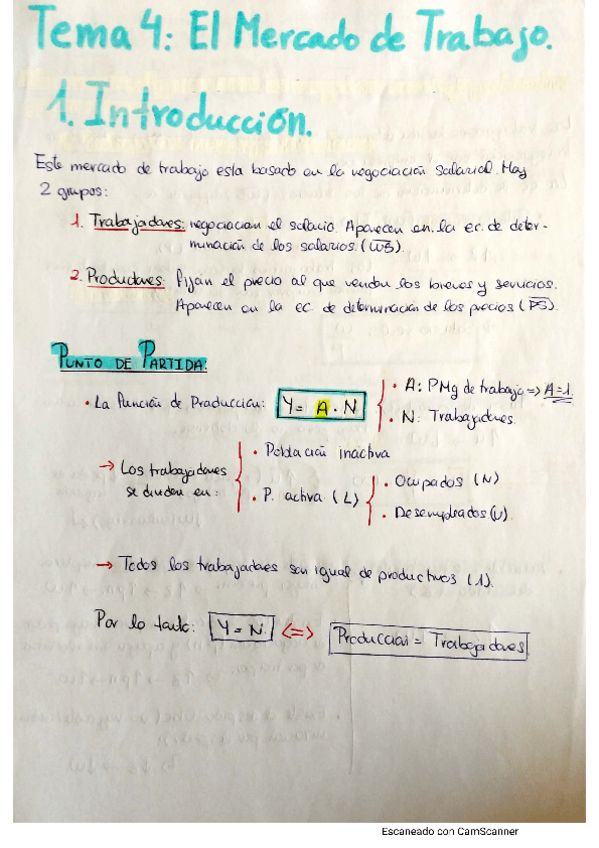 Tema 4: El Mercado de Trabajo.
1. Introducción.
Este mercado de trabajo esta basado en la negociación salarial. Hay
2 grupos:
1. Trabajadores: negociacian el salacio. Aparecen en la ec. de deter-
minación de los salarios. (WS).
2. Productores: Fijan el precio al que venden los bienes y servicios.
Aparecen en la ec. de determinación de los precios (PS).
PUNTO DE PARTIDA:
• La función de Producción: Y = A · N
• A: PMg de trabajo => A=1.
• N: Trabajadores.
→ Los trabajadores
se dividen en:
• Población inactiva
• P. activa (L)
• Ocupados (N)
• Desempleados (U).
→ Todos los trabajadores son igual de productivos (1).
Por lo tanto: Y = N. <=> Producción = Trabajadores
Escaneado con CamScanner